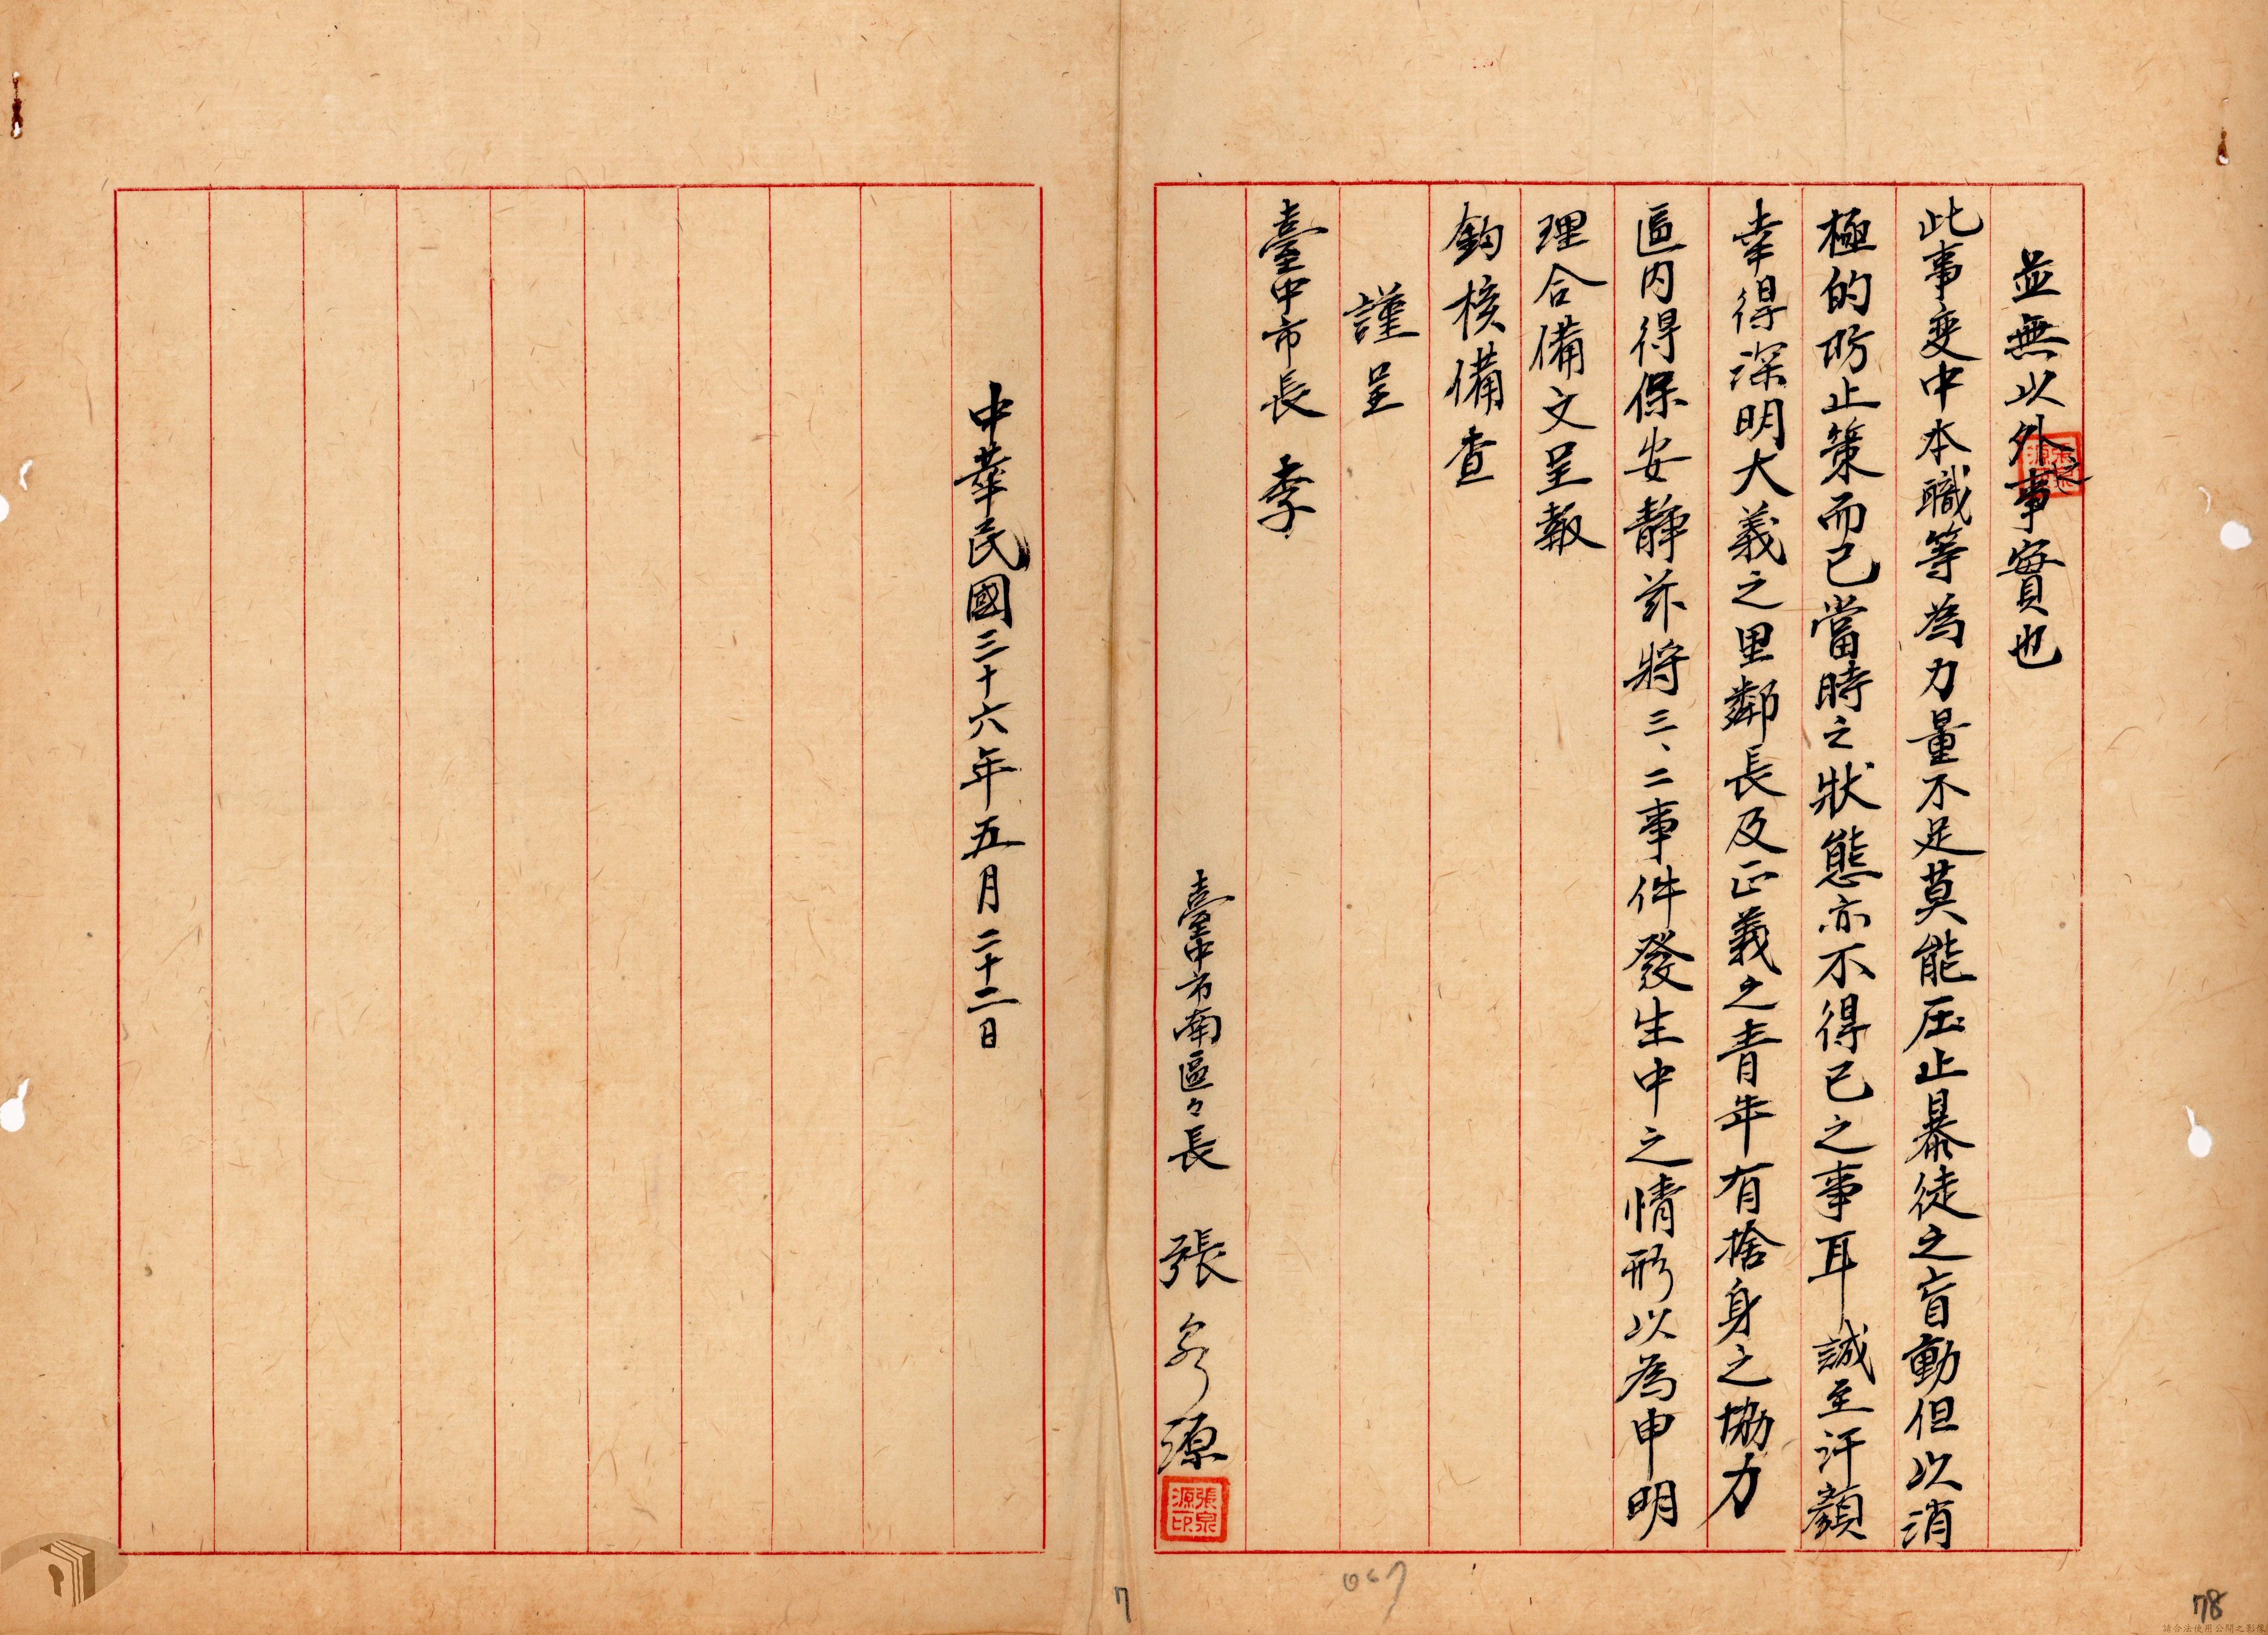 並無以外之事實也
此事变中本職等為力量不足莫能压止暴徒之盲動但以消
極的防止策而已當時之狀態亦不得已之事耳誠至汗顏
幸得深明大義之里鄰長及正義之青年有捨身之協力
區内得保安靜茲將三、二事件發生中之情形以為申明
理合備文呈報
鈞核備查
謹呈
臺中市長 李
臺中市南區々長 張泉源
張泉源印
中華民國三十六年五月二十二日
067
7
78
請合法使用公開之影像